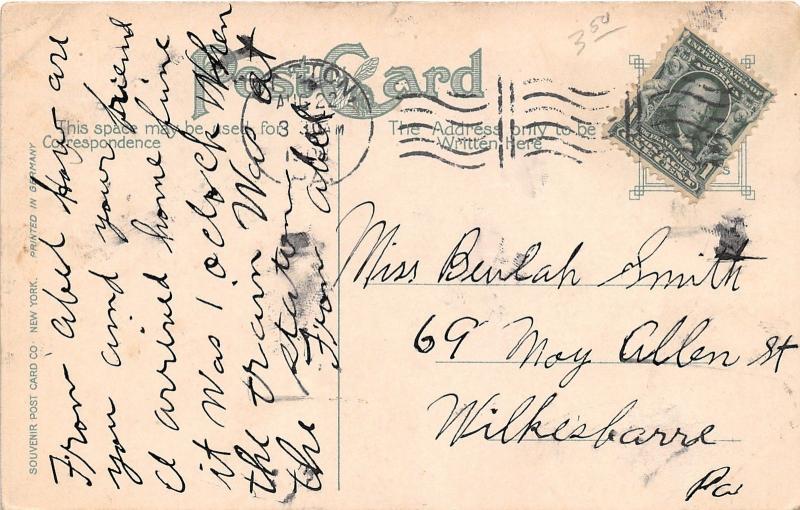 3 50
Post Card
This space may be used for
Correspondence
The Address only to be
Written Here
SOUVENIR POST CARD CO. NEW YORK. PRINTED IN GERMANY
From Abel How are
you and your friend
I arrived home fine
it was 1 oclock when
the train was at
the station
From Abel
Miss Beulah Smith
69 Moy Allen St
Wilkesbarre
Pa
UNITED STATES OF
AMERICA
1